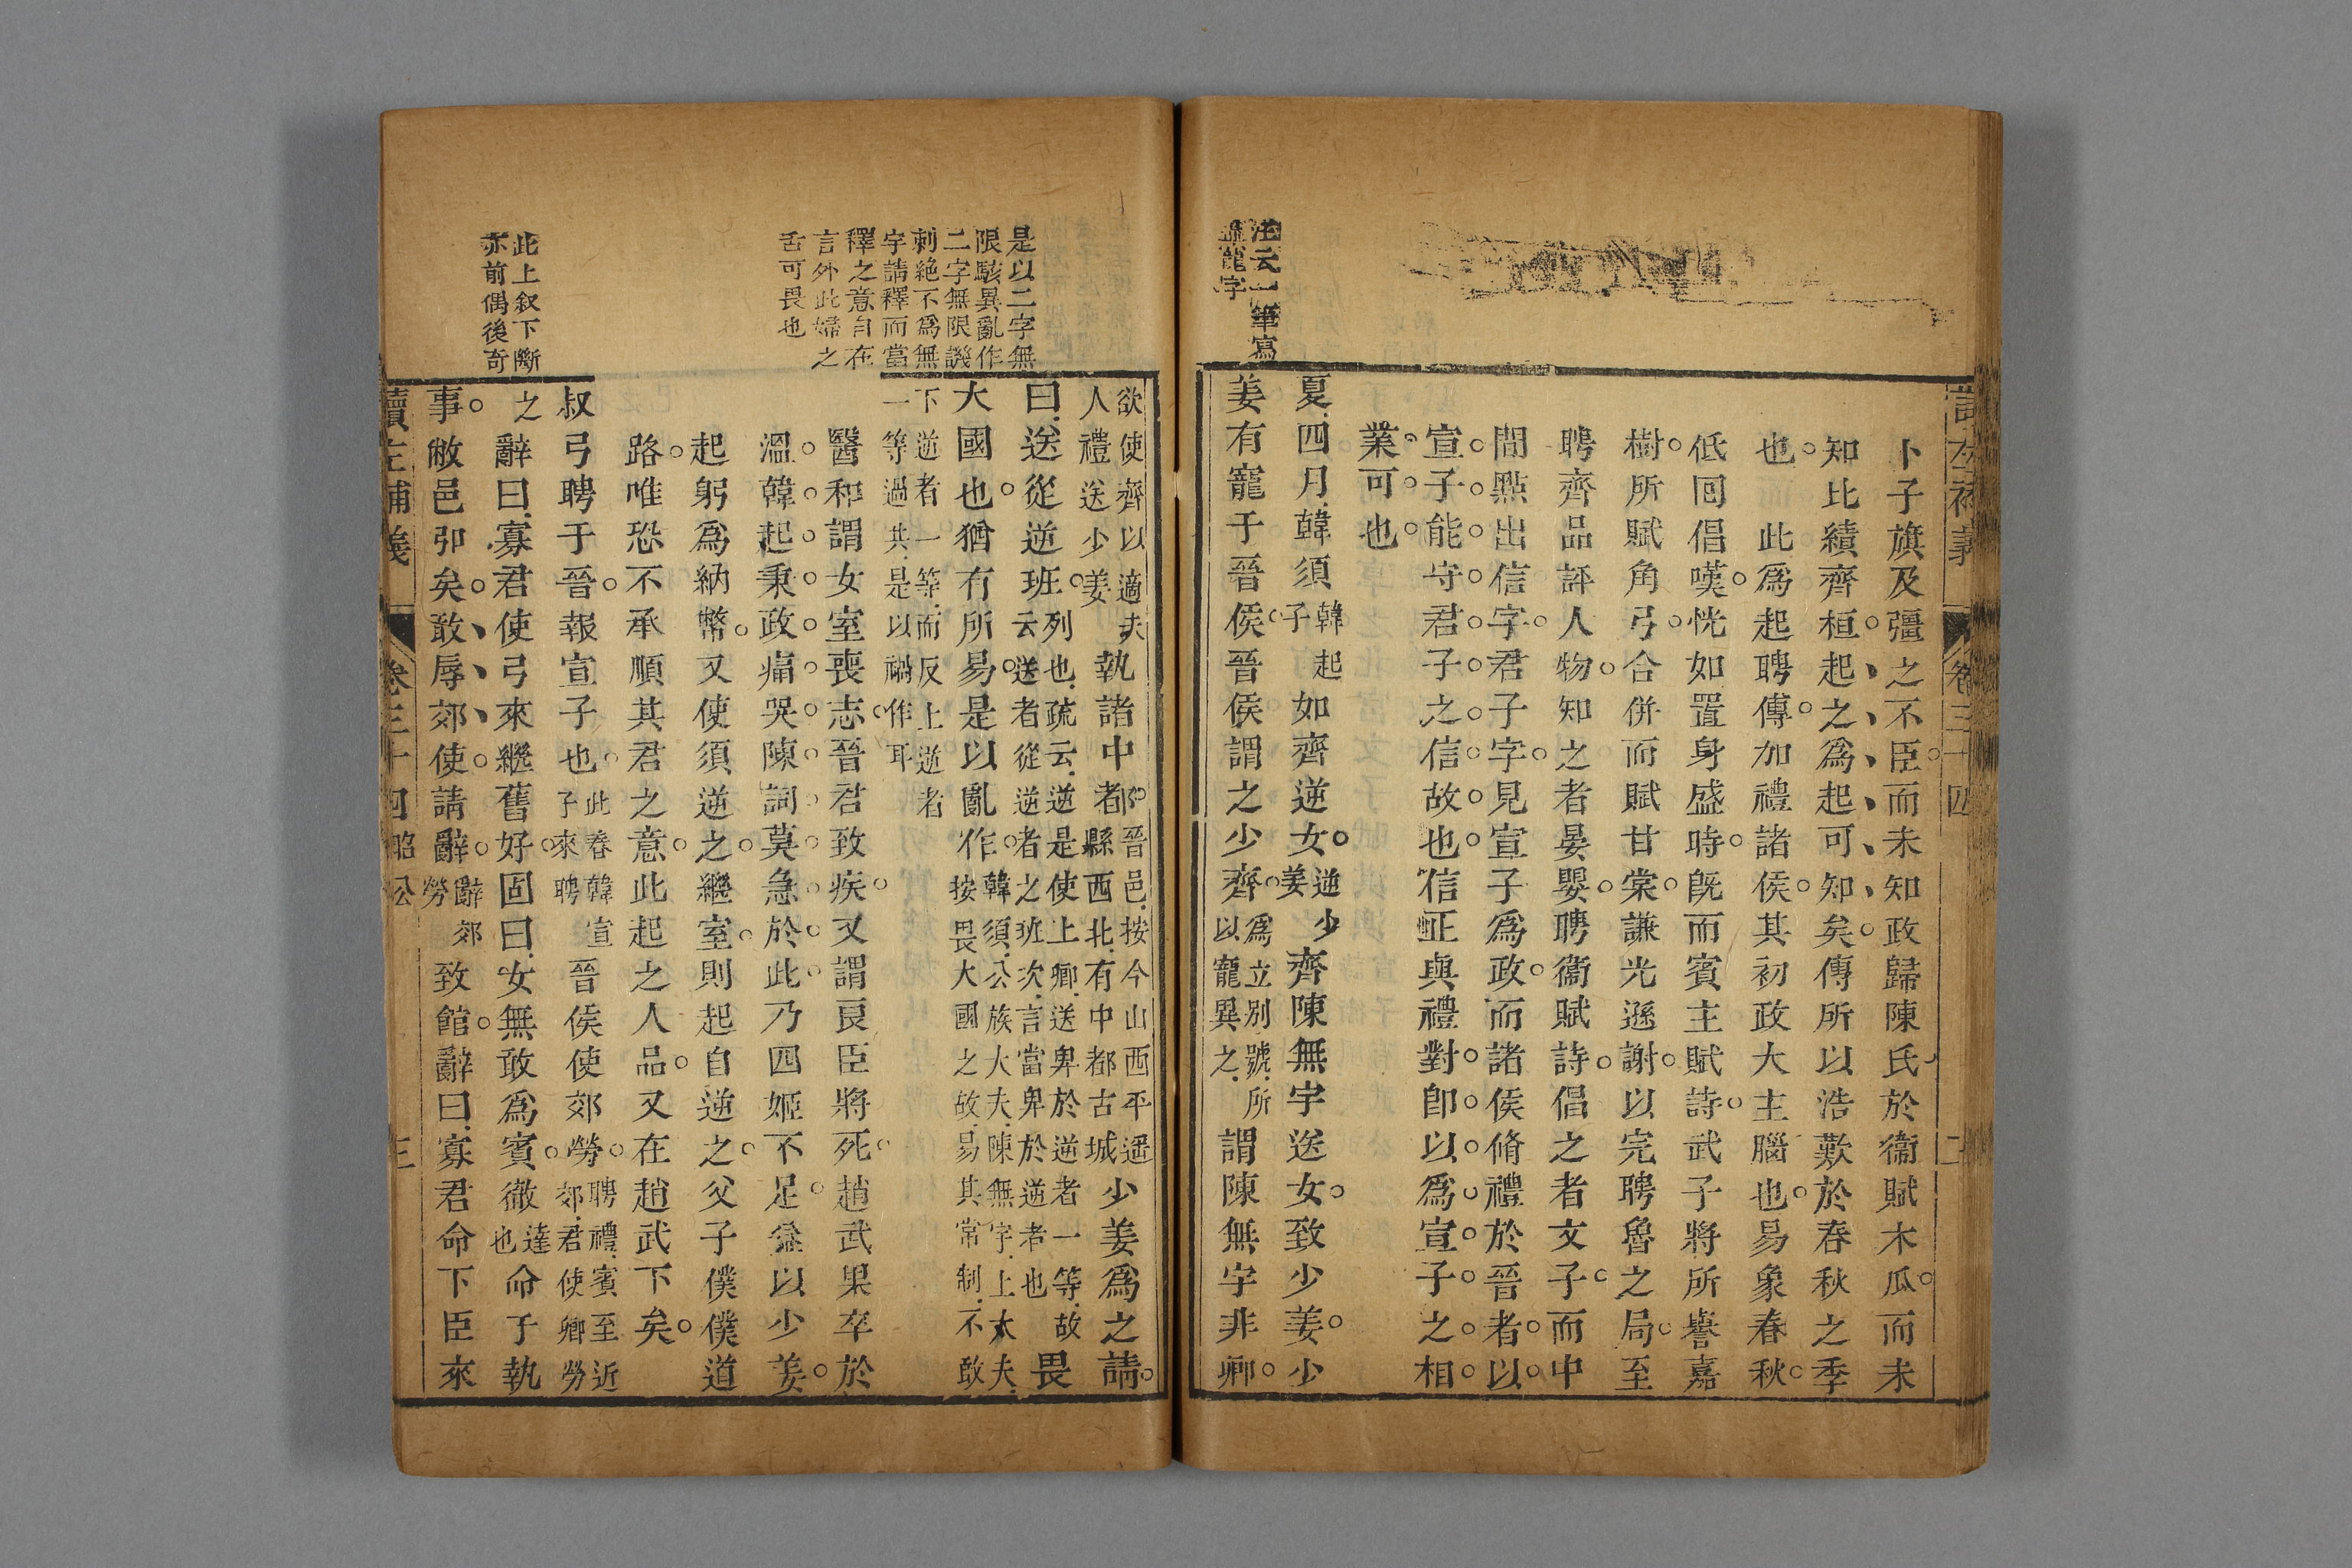 讀左補義 卷三十四 二
卜子旗及彊之不臣而未知政歸陳氏於衞賦木瓜而未
知比績齊桓起之爲起可知矣傳所以浩歎於春秋之季
也 此爲起聘傳加禮諸侯其初政大主腦也易象春秋
低回倡嘆恍如置身盛時旣而賓主賦詩武子將所譽嘉
樹所賦角弓合併而賦甘棠謙光遜謝以完聘魯之局至
聘齊品評人物知之者晏嬰聘衞賦詩倡之者文子而中
間點出信字君子字見宣子爲政而諸侯脩禮於晉者以
宣子能守君子之信故也信正與禮對卽以爲宣子之相
業可也
汪云一筆寫
龍字
夏四月韓須韓起
子如齊逆女逆少
姜齊陳無宇送女致少姜少
姜有寵于晉侯晉侯謂之少齊爲立別號所
以寵異之謂陳無宇非卿
欲使齊以適夫
人禮送少姜執諸中都晉邑按今山西平遥
縣西北有中都古城少姜爲之請
曰送從逆班列也疏云逆是使上卿送卑於逆者一等故
云送者從逆者之班次言當卑於逆者也畏
大國也猶有所易是以亂作韓須公族大夫陳無宇上大夫
按畏大國之故易其常制不敢
下逆者一等而反上逆者
一等過其是以禍作耳
是以二字無
限駭異亂作
二字無限譏
刺絶不爲無
宇請釋而當
釋之意自在
言外此婦之
舌可畏也
醫和謂女室喪志晉君致疾又謂良臣將死趙武果卒於
溫韓起秉政痛哭陳詞莫急於此乃四姬不足益以少姜
起躬爲納幣又使須逆之繼室則起自逆之父子僕僕道
路唯恐不承順其君之意此起之人品又在趙武下矣
叔弓聘于晉報宣子也此春韓宣
子來聘晉侯使郊勞聘禮賓至近
郊君使卿勞
此上叙下斷
亦前偶後奇
之辭曰寡君使弓來繼舊好固曰女無敢爲賓徹達
也命于執
事敝邑弘矣敢辱郊使請辭辭郊
勞致館辭曰寡君命下臣來
讀左補義 卷三十四 昭公 三